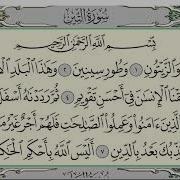 سُورَةُ التِّينِ
بِسْمِ اللَّهِ الرَّحْمَٰنِ الرَّحِيمِ
وَالزَّيْتُونِ ١ وَطُورِ سِينِينَ ٢ وَهَٰذَا الْبَلَدِ
الْإِنسَٰنَ فِي أَحْسَنِ تَقْوِيمٍ ٤ ثُمَّ رَدَدْنَٰهُ أَسْفَلَ
ءَامَنُوا وَعَمِلُوا الصَّٰلِحَٰتِ فَلَهُمْ أَجْرٌ غَيْرُ
بَعْدُ بِالدِّينِ ٧ أَلَيْسَ اللَّهُ بِأَحْكَمِ